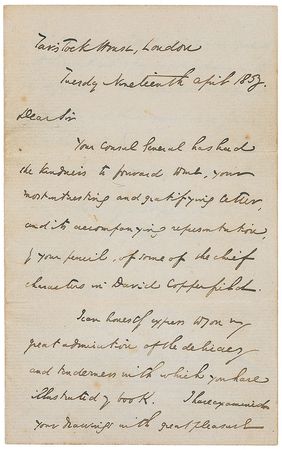 Tavistock House, London
Tuesday Nineteenth April 1859.
Dear Sir
Your Consul General has had
the kindness to forward to me, your
most interesting and gratifying letter,
and its accompanying representation,
by your pencil, of some of the chief
characters in David Copperfield.
I can honestly express to you my
great admiration of the delicacy
and tenderness with which you have
illustrated my book. I have examined
your drawings with great pleasure